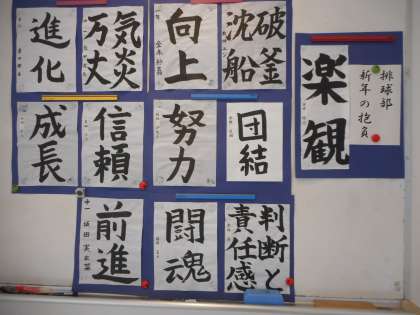 進化
気炎
万丈
向上
破釜
沈船
楽観
排球部
新年の抱負
成長
信頼
努力
団結
前進
闘魂
判断と
責任感